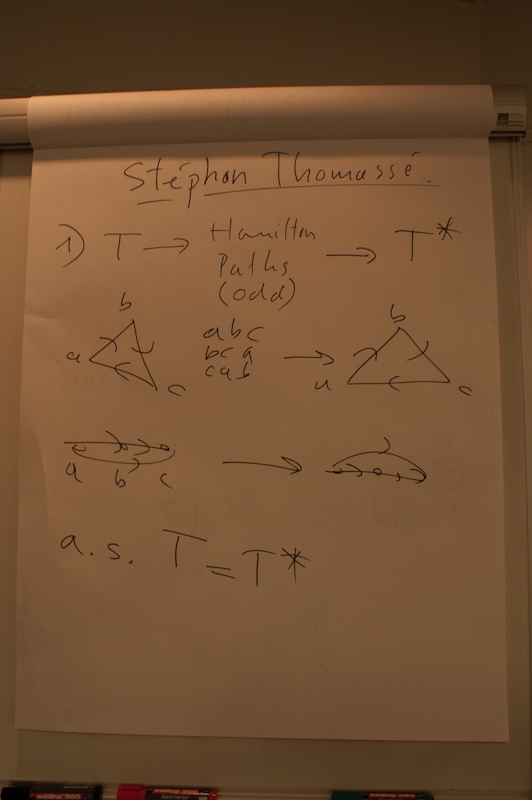 Stéphan Thomassé.
1) T → Hamilton Paths (odd) → T*
b
a
c
abc
bca
cab
→
b
a
c
a b c →
a.s. T = T*